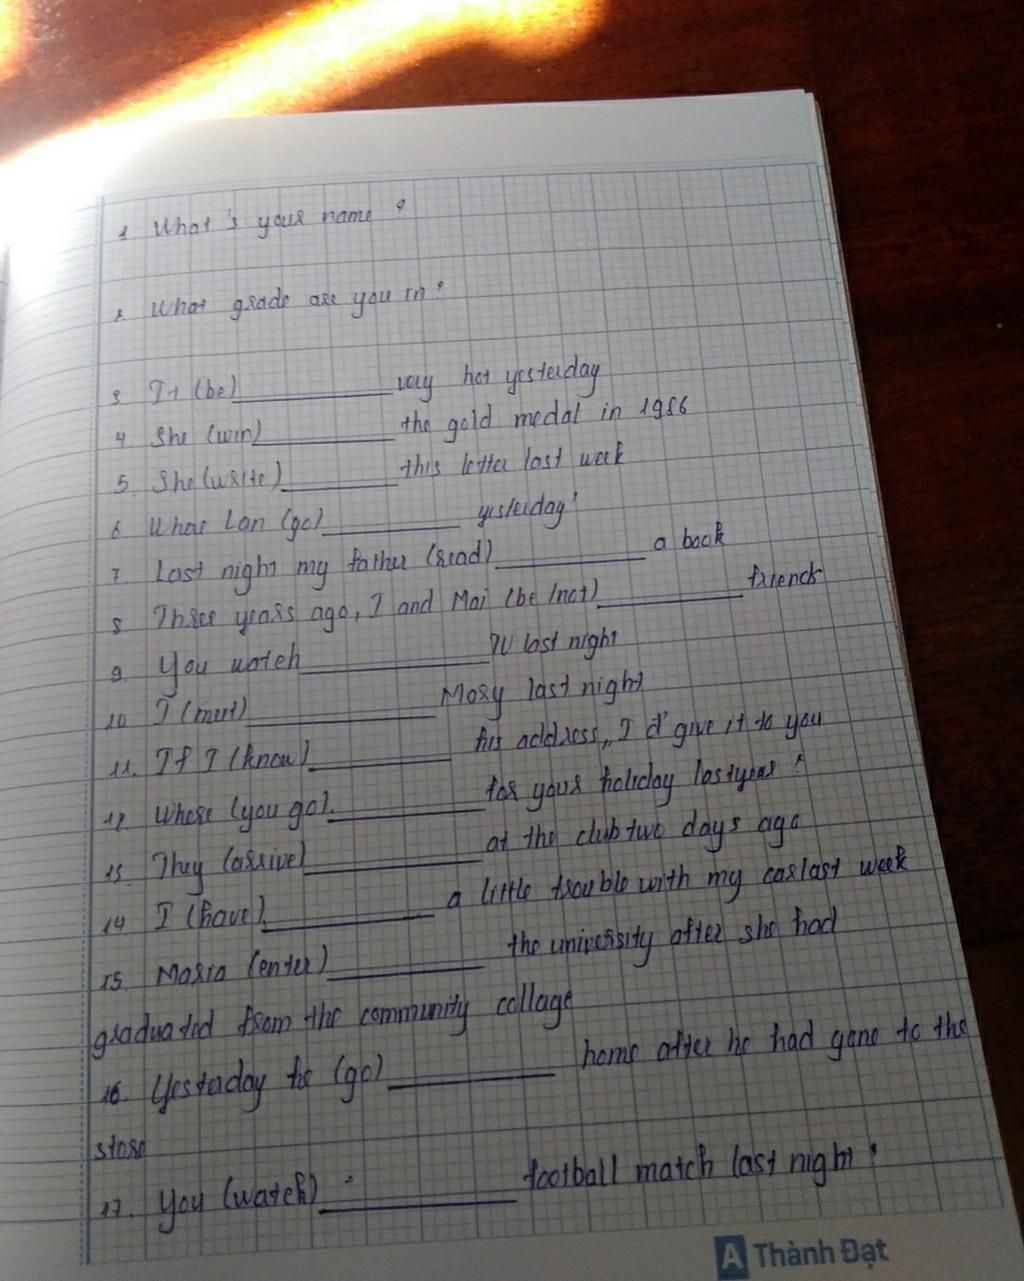 1 What's your name ?
2 What grade are you in?
3 It (be)__________ very hot yesterday
4 She (win)__________ the gold medal in 1986
5. She (write)__________ this letter last week
6 Lan (go)__________ yesterday?
7. Last night my father (read)__________ a book
8. Three years ago, I and Mai (be /not)__________ friends
9. You watch__________ TV last night
10 I (meet)__________ Mary last night
11. If I (know)__________ his address, I d' give it to you
12 Where (you go)__________ for your holiday last year ?
13. They (arrive)__________ at the club two days ago
14 I (have)__________ a little trouble with my car last week
15. Maria (enter)__________ the university after she had
graduated from the community collage
16. Yesterday he (go)__________ home after he had gone to the
store
17. You (watch)__________ football match last night ?
Thành Đạt